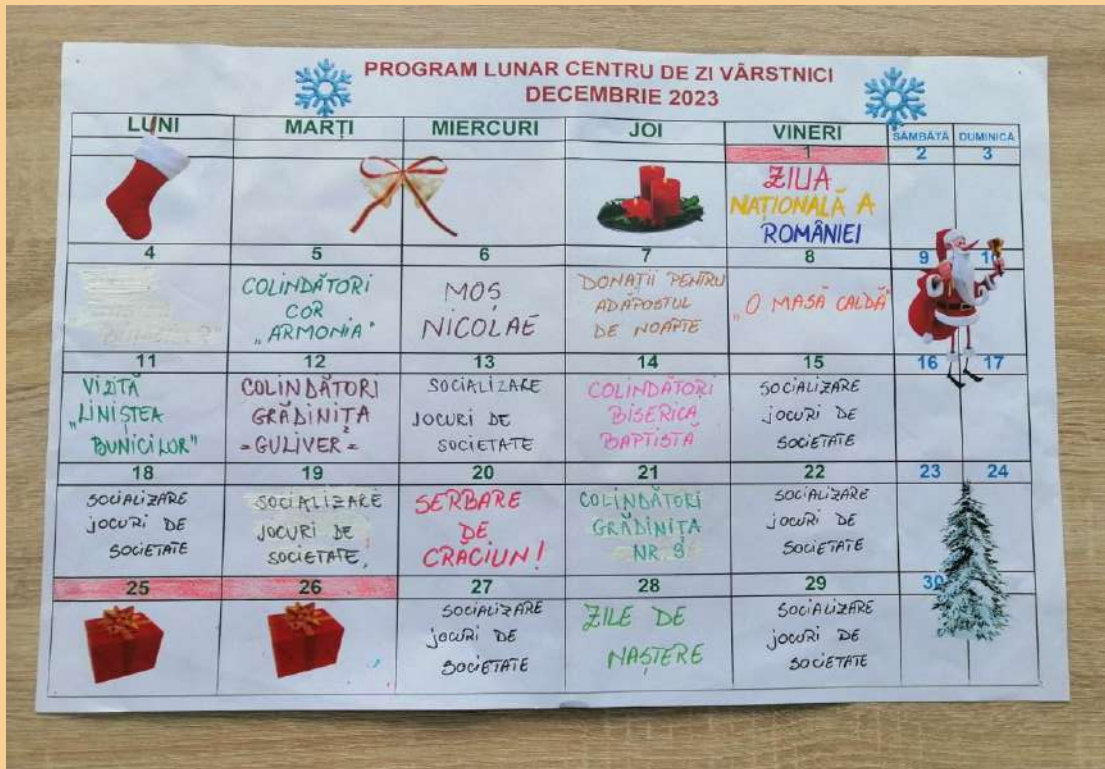 PROGRAM LUNAR CENTRU DE ZI VÂRSTNICI
DECEMBRIE 2023
LUNI MARȚI MIERCURI JOI VINERI SÂMBĂTĂ DUMINICĂ
1 2 3
ZIUA
NAȚIONALĂ A
ROMÂNIEI
4 5 6 7 8 9 10
COLINDĂTORI
COR
„ARMONIA"
MOȘ
NICOLAE
DONAȚII PENTRU
ADĂPOSTUL
DE NOAPTE
„O MASĂ CALDĂ"
11 12 13 14 15 16 17
VIZITĂ
„LINIȘTEA
BUNICILOR"
COLINDĂTORI
GRĂDINIȚA
=GULIVER=
SOCIALIZARE
JOCURI DE
SOCIETATE
COLINDĂTORI
BISERICA
BAPTISTĂ
SOCIALIZARE
JOCURI DE
SOCIETATE
18 19 20 21 22 23 24
SOCIALIZARE
JOCURI DE
SOCIETATE
SOCIALIZARE
JOCURI DE
SOCIETATE
SERBARE
DE
CRĂCIUN!
COLINDĂTORI
GRĂDINIȚA
NR. 9
SOCIALIZARE
JOCURI DE
SOCIETATE
25 26 27 28 29 30
SOCIALIZARE
JOCURI DE
SOCIETATE
ZILE DE
NAȘTERE
SOCIALIZARE
JOCURI DE
SOCIETATE